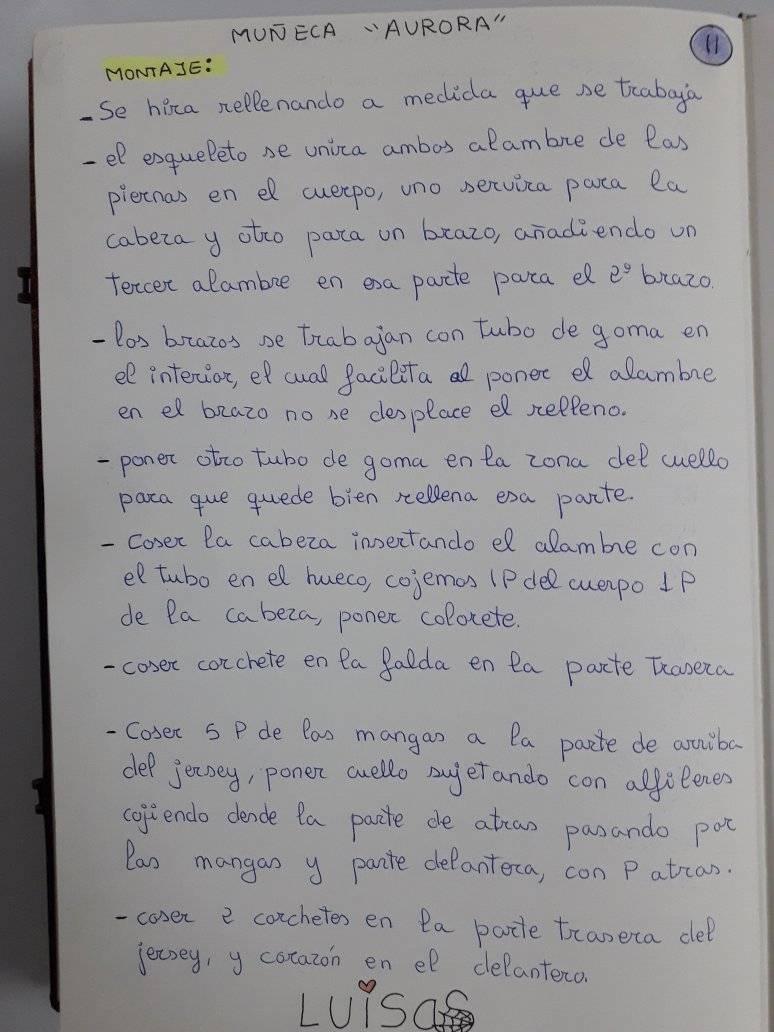 MUÑECA "AURORA"
11
MONTAJE:
- Se hira rellenando a medida que se trabaja
- el esqueleto se unira ambos alambre de las
piernas en el cuerpo, uno servira para la
cabeza y otro para un brazo, añadiendo un
Tercer alambre en esa parte para el 2º brazo.
- los brazos se Trabajan con Tubo de goma en
el interior, el cual facilita al poner el alambre
en el brazo no se desplace el relleno.
- poner otro Tubo de goma en la zona del cuello
para que quede bien rellena esa parte.
- Coser la cabeza insertando el alambre con
el Tubo en el hueco, cojemos 1P del cuerpo 1P
de la cabeza, poner colorete.
- coser corchete en la falda en la parte Trasera
- Coser 5 P de las mangas a la parte de arriba
del jersey, poner cuello sujetando con alfileres
cojiendo desde la parte de atras pasando por
las mangas y parte delantera, con P atras.
- coser 2 corchetes en la parte trasera del
jersey, y corazón en el delantero.
LUISAS